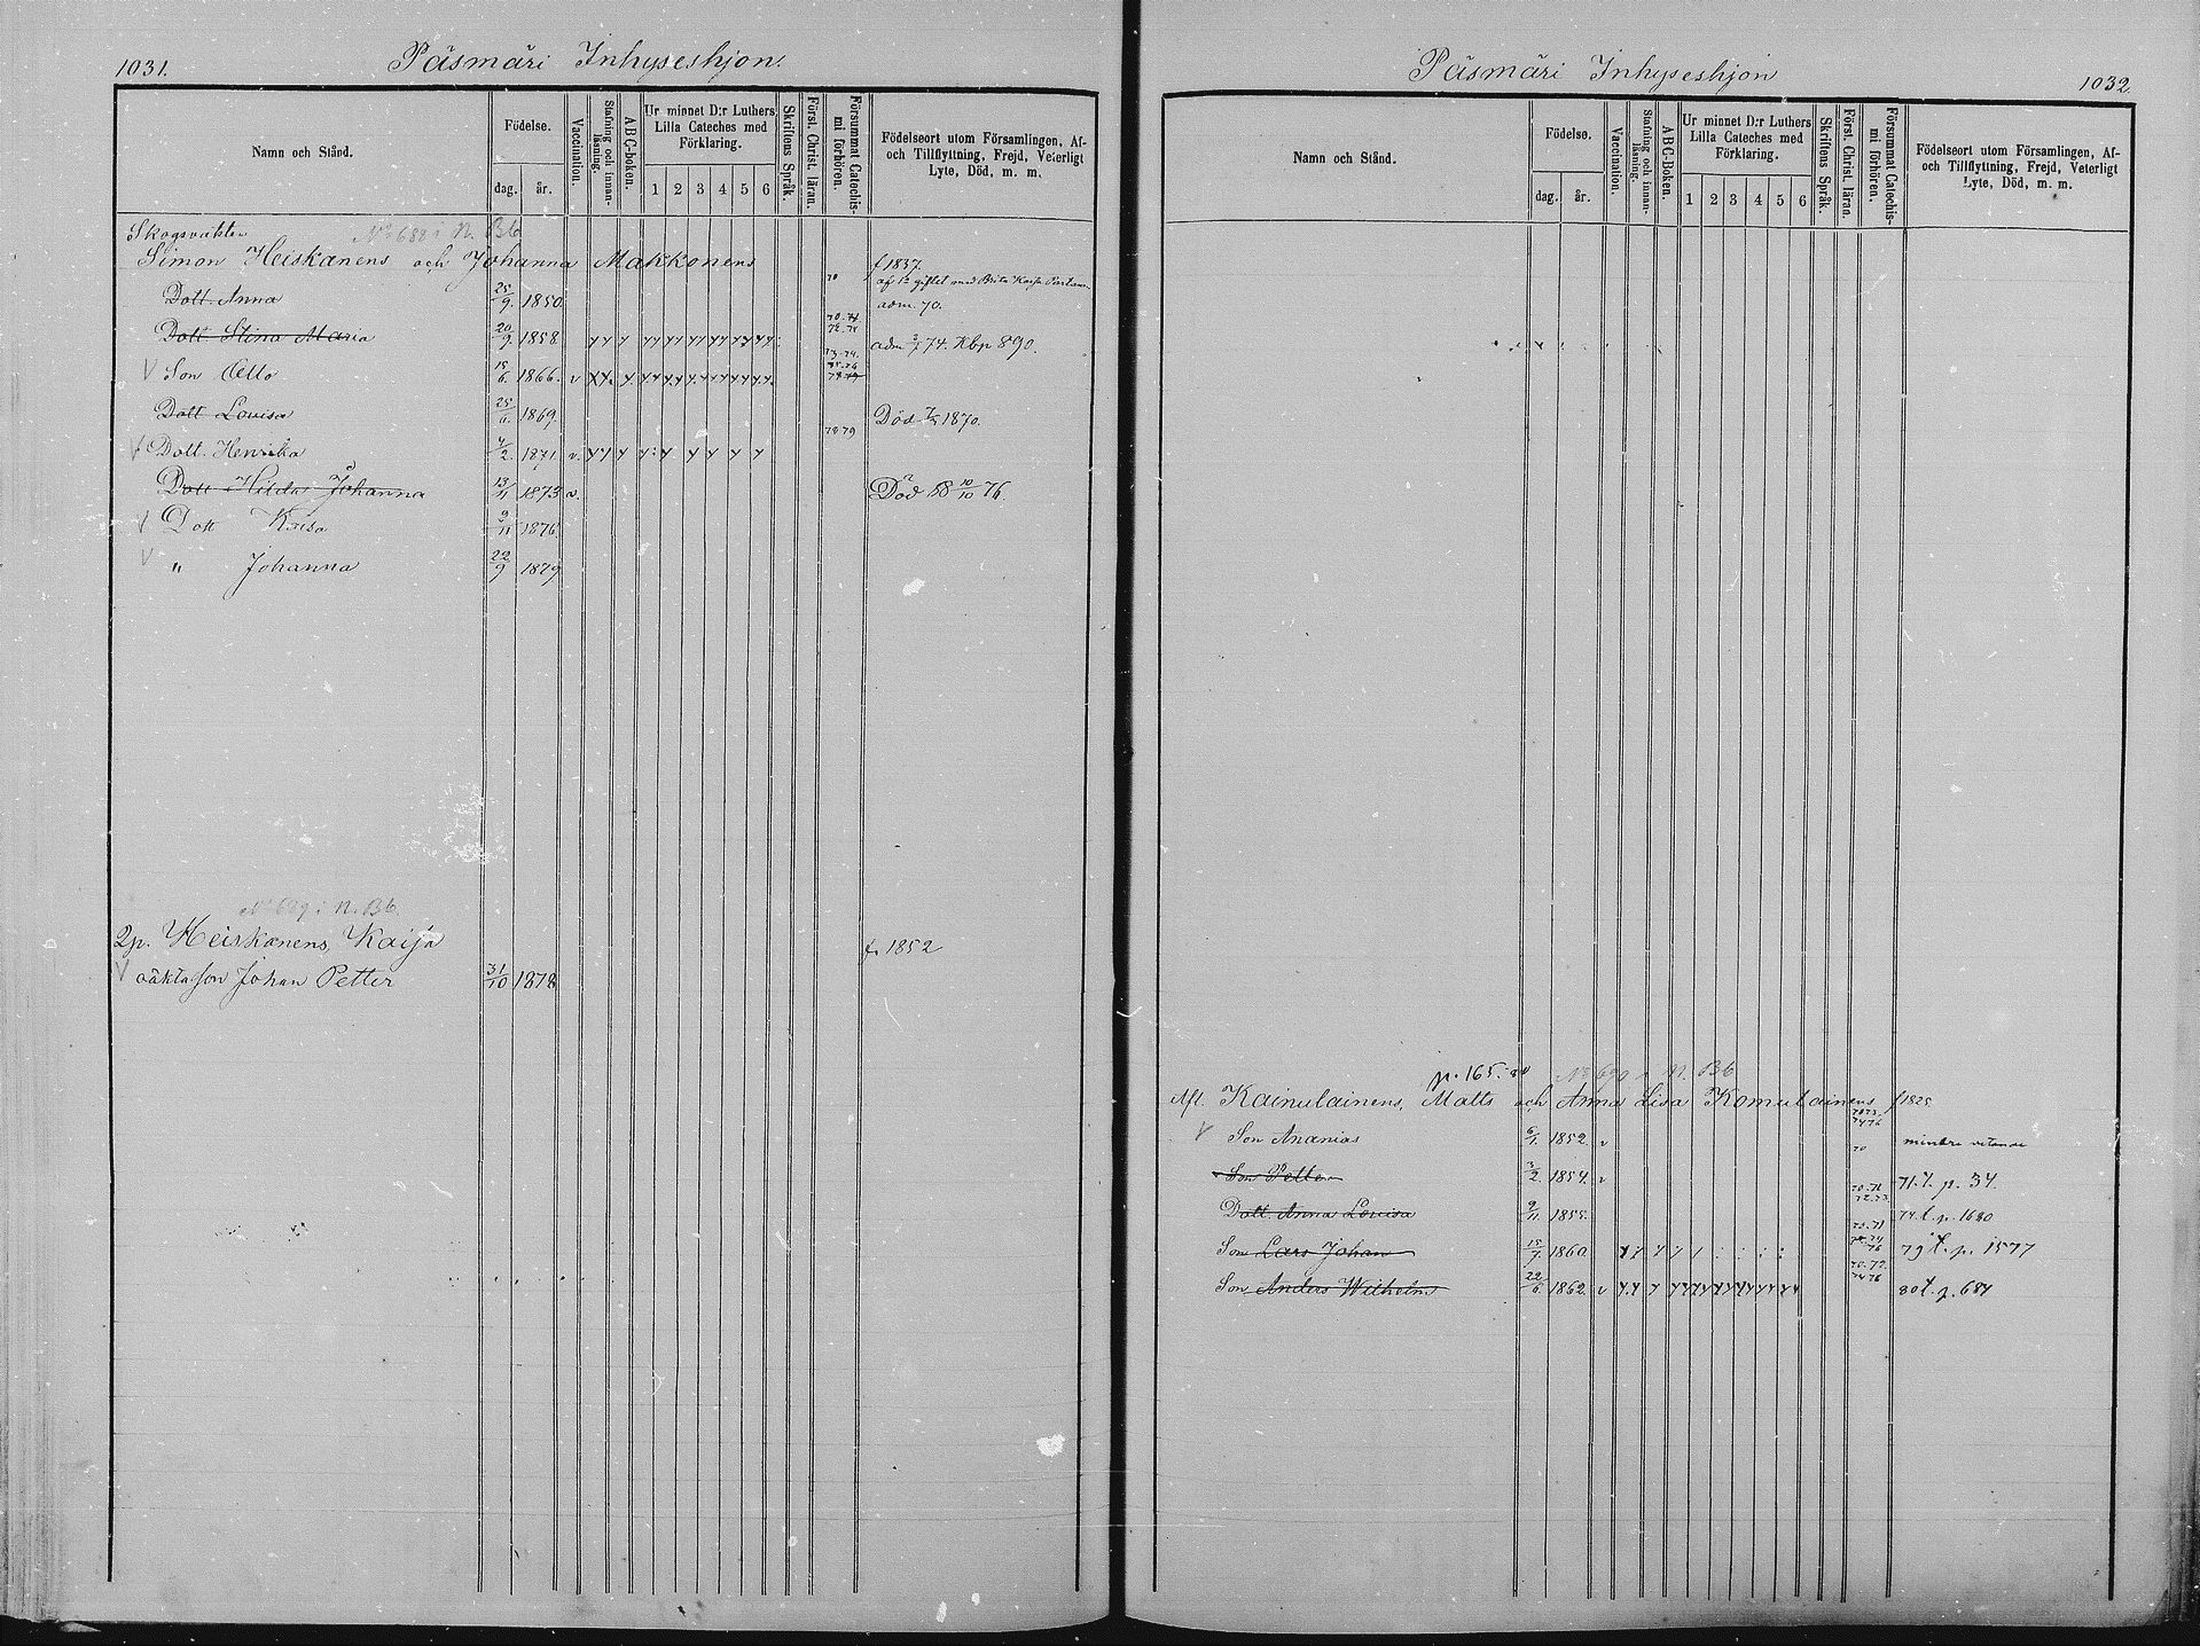 1031. Päsmäri Inhyseshjon.
Namn och Stånd.
Födelse.
dag. år.
Vaccination.
Stafning och innan-läsning.
ABC-boken.
Ur minnet D:r Luthers Lilla Cateches med Förklaring.
1 2 3 4 5 6
Skriftens Språk.
Först. Christ. läran.
Försummat Catechis-mi förhören.
Födelseort utom Församlingen, Af- och Tillflyttning, Frejd, Veterligt Lyte, Död, m. m.
Skogsvakten No 688 i N. Bb
Simon Heiskanens och Johanna Makkonens f 1837.
af 1a giftet med Brita Kaisa
Dott. Anna 25/9. 1850 70 adm. 70.
Dott. Stina Maria 20/9. 1858 adm 74. Kbp 890.
V Son Otto 15/6. 1866. v
Dott Lovisa 1869. Död 1870.
V Dott. Henrika 4/2. 1871. v. 78 79
Dott Hilda Johanna 13/11 1873 v. Död 10/10 76.
V Dott Kaisa 9/11 1876.
V " Johanna 22/9 1879
No 689 i N. Bb.
Qp. Heiskanens, Kaisa f. 1852
V oäkta son Johan Petter 31/10 1878
Päsmäri Inhyseshjon 1032.
Namn och Stånd.
Födelse.
dag. år.
Vaccination.
Stafning och innan-läsning.
ABC-Boken.
Ur minnet D:r Luthers Lilla Cateches med Förklaring.
1 2 3 4 5 6
Skriftens Språk.
Först. Christ. läran.
Försummat Catechis-mi förhören.
Födelseort utom Församlingen, Af- och Tillflyttning, Frejd, Veterligt Lyte, Död, m. m.
p. 165. No 690 i N. Bb
Kainulainens, Matts och Anna Lisa Komulainens f 1825
V Son Ananias 6/1. 1852. v 70 mindre vetande
Son Petter 3/2. 1854. v 71. t. p. 34.
Dott. Anna Lovisa 9/11. 1855. 74. t. p. 1680
Son Lars Johan 15/7. 1860. 79 t. p. 1577
Son Anders Wilhelm 22/6. 1862. v 80 t. p. 684